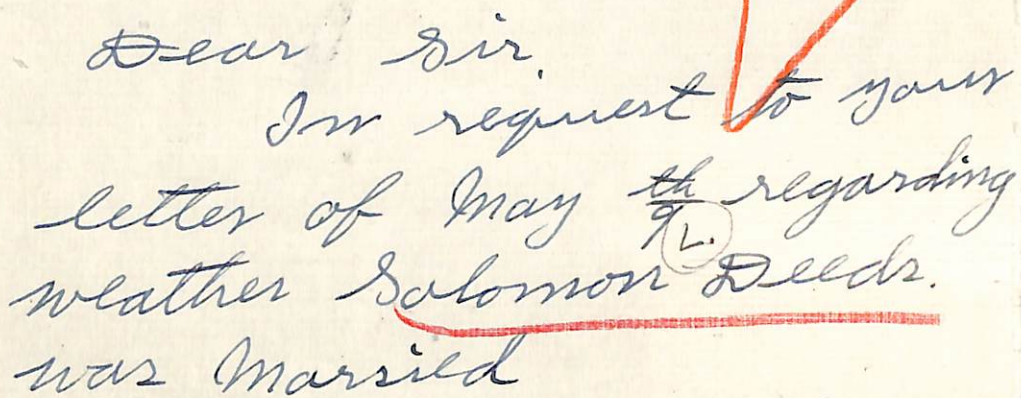 Dear Sir.
In request to your
letter of May 9th regarding
L.
weather Solomon Deeds.
was Married